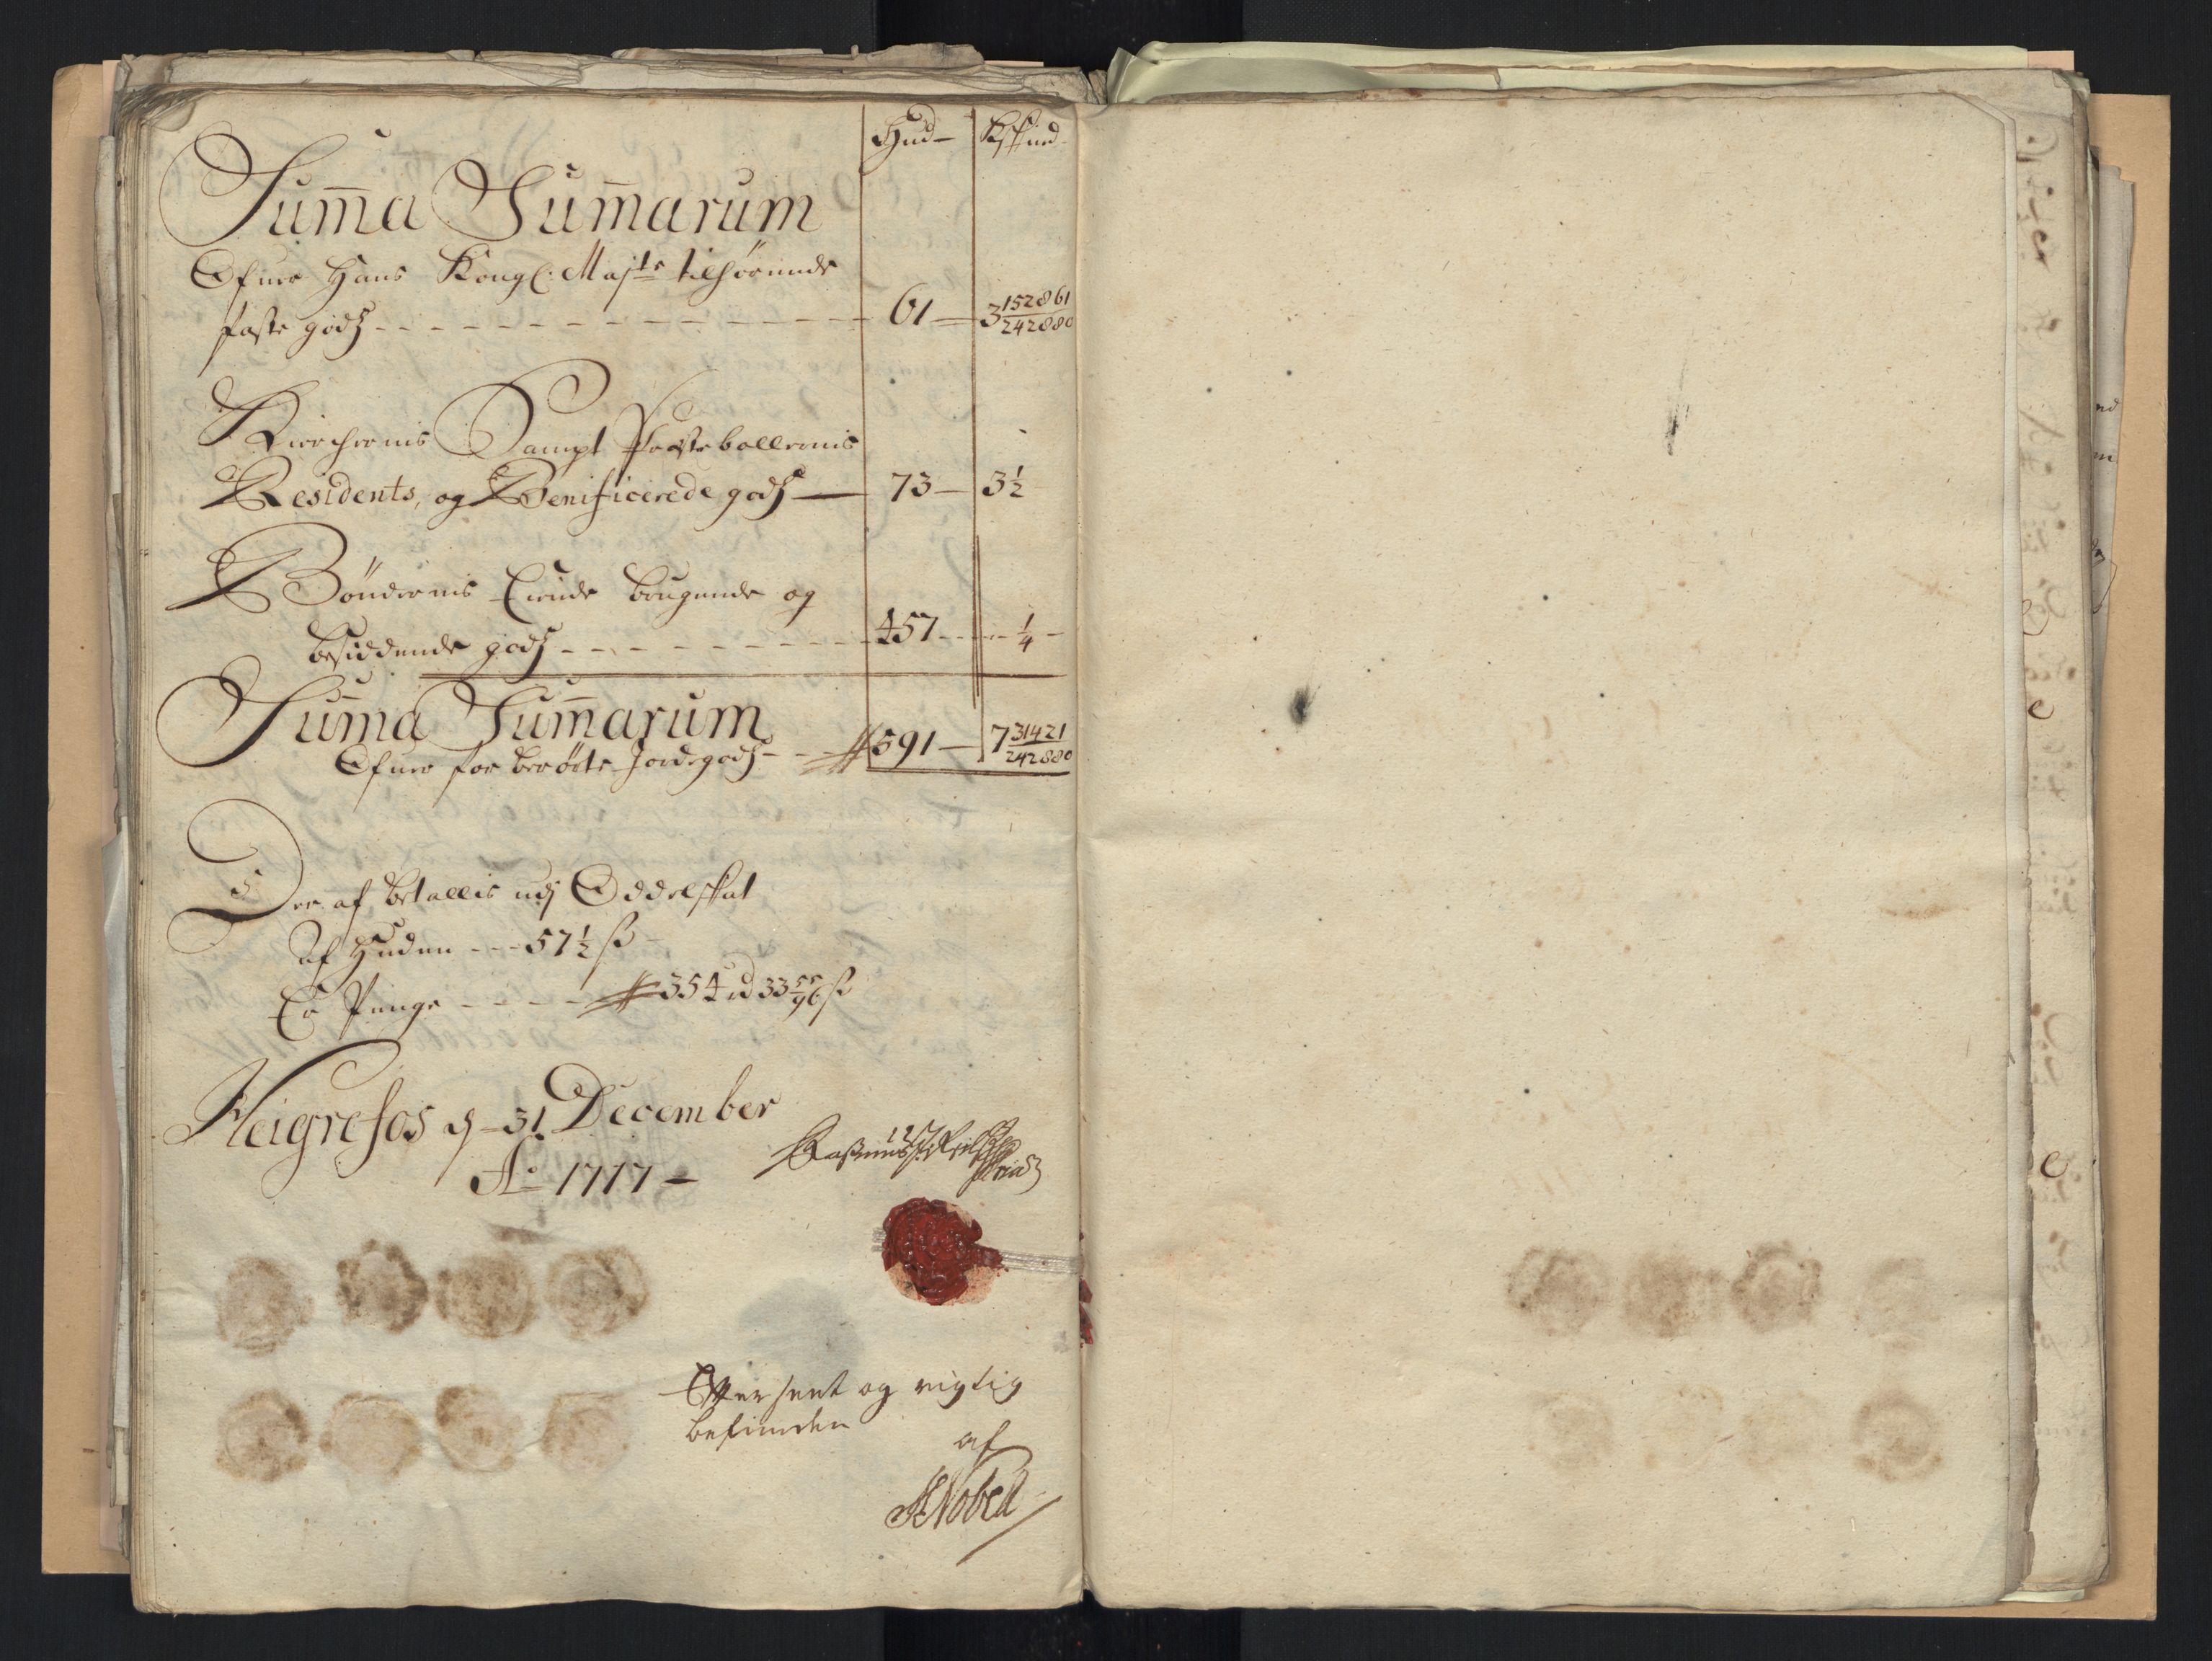 Hud — Kskind
Sum̄a Sum̄arum
Ofuer Hans Kongl: Majts tilhørende
faste godz — 61 — 3 152861/242880
Kierchernis Sampt Præstebollernis
Residents, og Benificerede godz — 73 — 3 1/2
Bøndernis Eiende brugende og
besiddende godz — 457 — 1/4 —
Sum̄a Sum̄arum
Ofuer for berørte Jordegodz — 591 — 7 31421/242880
Der af betallis udj Oddelskat
Af Huden --- 57 1/2 ß
Er Penge — 354 rd 33 55/96 ß
Heigrefos d. 31. December
Ao 1717 —
Rasmus
Efterseet og rigtig
befunden
af
Nobel